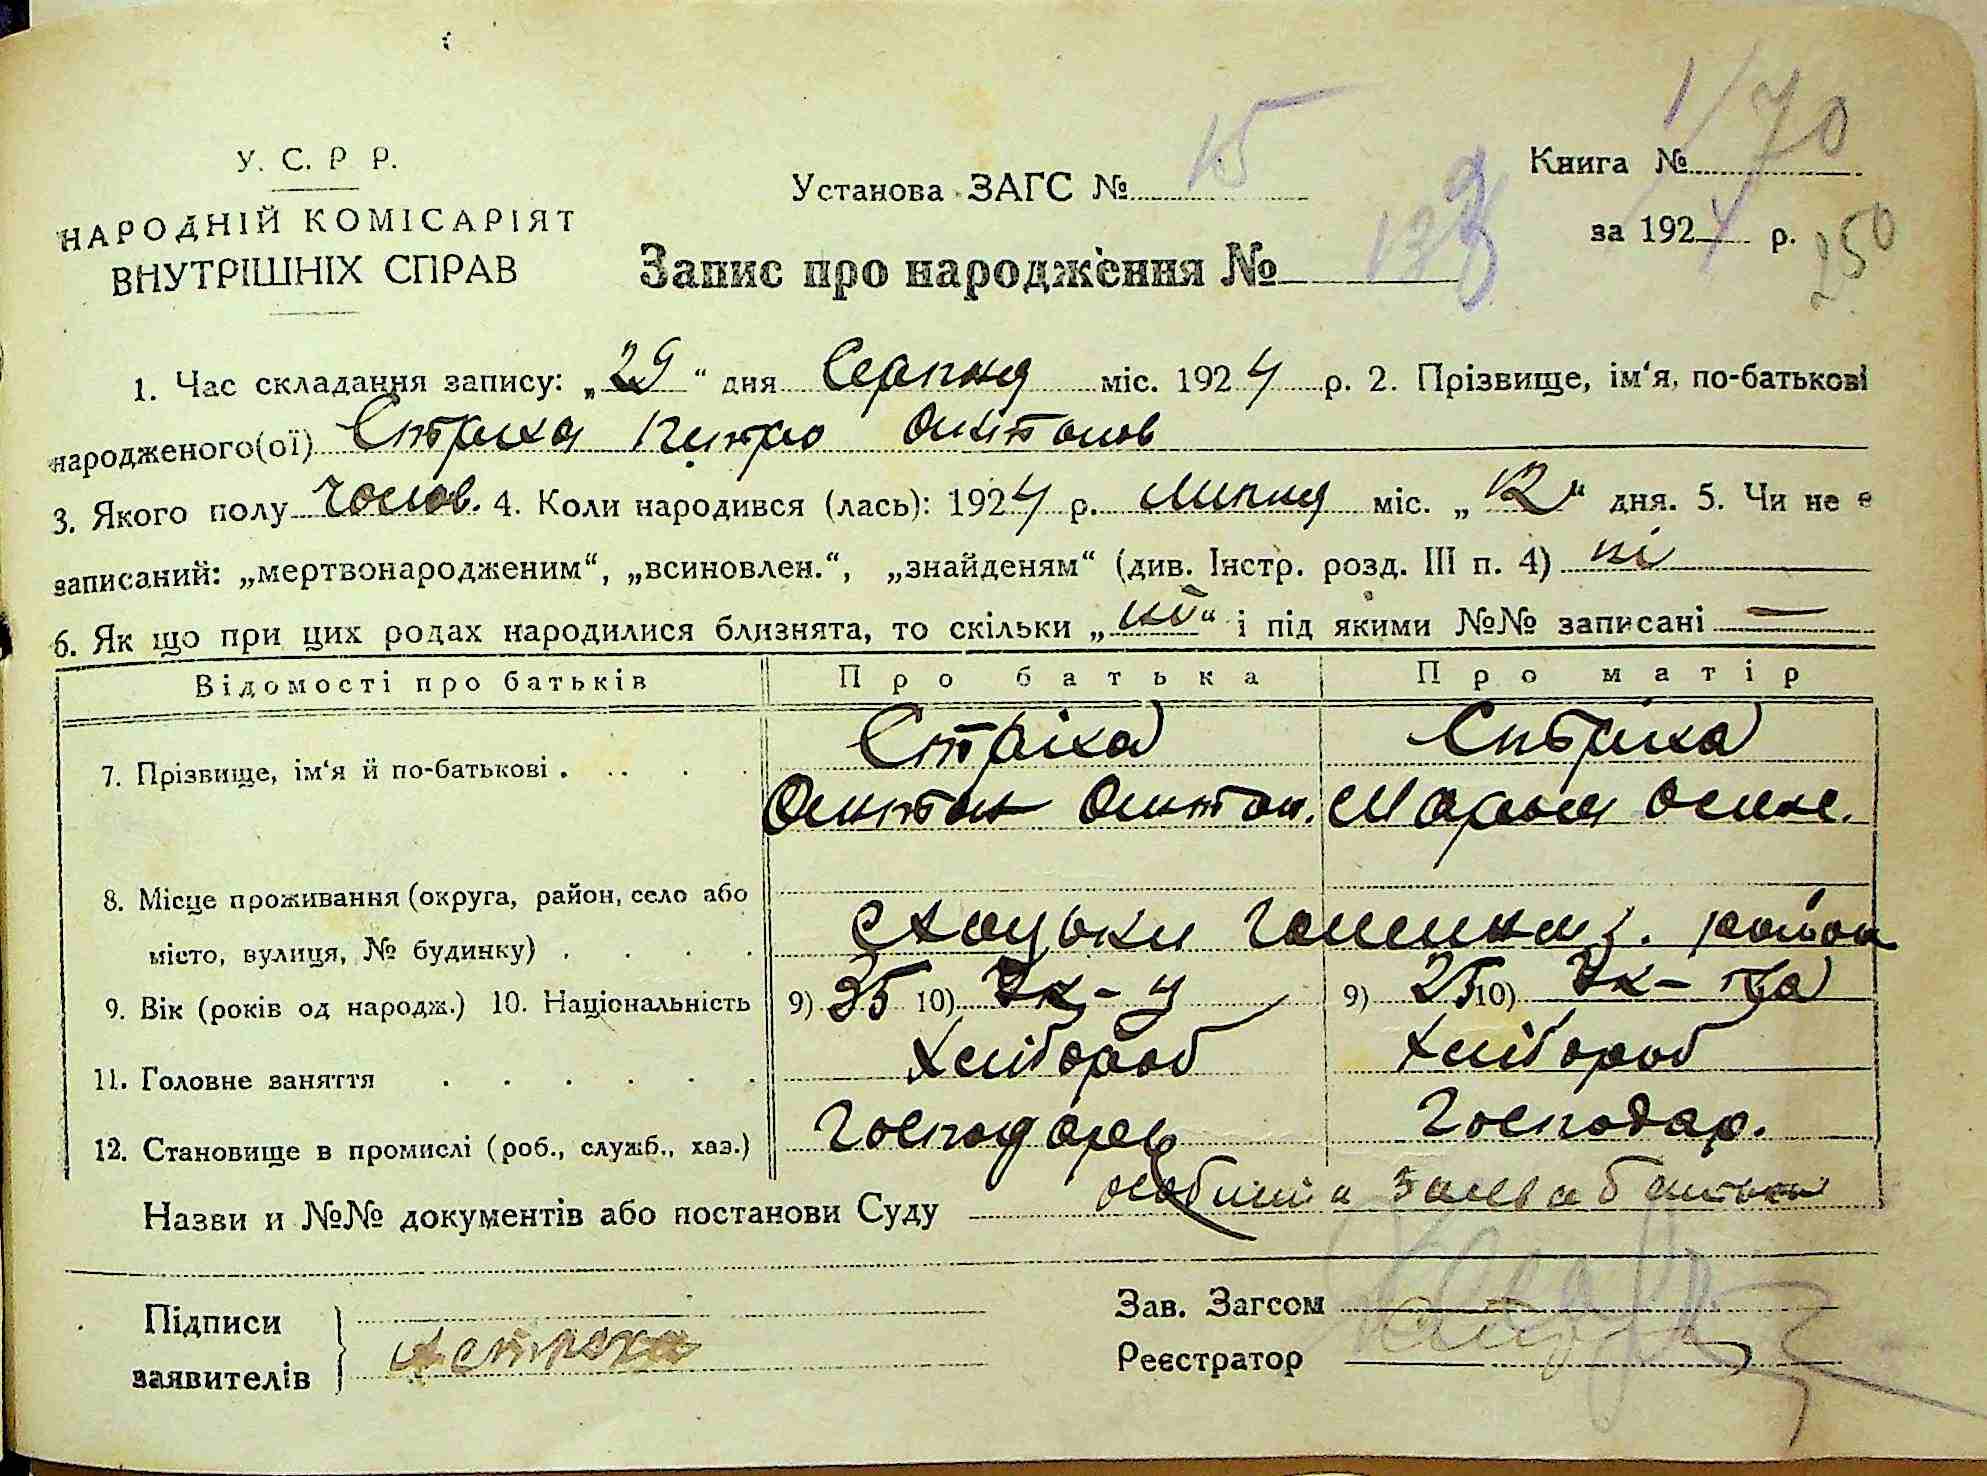 У. С. Р Р.
НАРОДНІЙ КОМІСАРІЯТ
ВНУТРІШНІХ СПРАВ
Установа ЗАГС № 15
Книга № 1/70
за 1924 р.
250
Запис про народження №
1. Час складання запису: „29“ дня Серпня міс. 1924 р. 2. Прізвище, ім‘я, по-батькові
народженого(ої) Стріха Петро Антонов
3. Якого полу Чолов. 4. Коли народився (лась): 1924 р. Липня міс. „12“ дня. 5. Чи не є
записаний: „мертвонародженим“, „всиновлен.“, „знайденям“ (див. Інстр. розд. III п. 4) ні
6. Як що при цих родах народилися близнята, то скільки „ні“ і під якими №№ записані —
Відомості про батьків Про батька Про матір
7. Прізвище, ім‘я й по-батькові . . . . Стріха Стріха
Антон Антон. Марья
8. Місце проживання (округа, район, село або
місто, вулиця, № будинку) . . . . район
9. Вік (років од народж.) 10. Національність 9) 35 10) Ук-ц 9) 25 10) Ук-ка
11. Головне заняття . . . . . . Хлібороб Хлібороб
12. Становище в промислі (роб., служб., хаз.) Господарь Господар.
Назви и №№ документів або постанови Суду заява батька
Підписи
заявителів
А Стріха
Зав. Загсом
Реєстратор